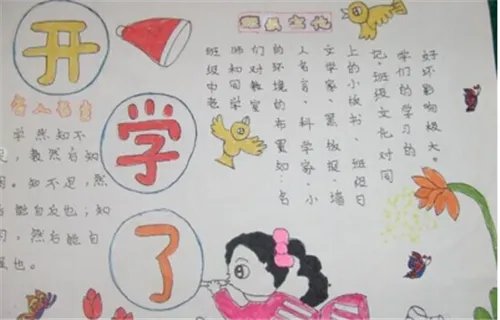 开
学
了
班级文化
班级中老
师和同学
们对教室
的环境的布置如:名
人名言、科学家、小
文学家、黑板报、墙
上的小板书、班级日
记。班级文化对同
学们的学习的
好坏影响极大。
名人名言
学然知不
足,教然后知
困。知不足,然
后能自反也;知
困,然后能自
强也。